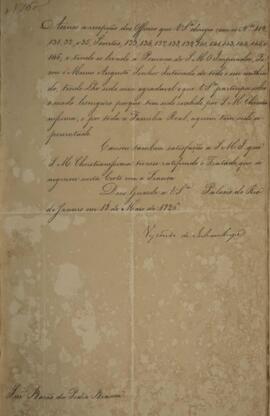 Accuso a recepção dos Officios que V.Sª dirigio com os Nos
131, 32, e 35, Secretos, 133, 136, 137, 138, 139, 141, 143, 144, 145, e
146, e tendo os levado à Presença de S.M.O Imperador, Ficou
o Mesmo Augusto Senhor Inteirado de todo o seu conthe
do, tendo Lhe sido mui agradavel o que V.Sª participa sobre
o modo lisongeiro porque tem sido recebido por S.M. Christia
nissima, e por toda a Familia Real, a quem tem sido a
presentado.
Causou tambem satisfação a S.M.I. que
S.M. Christianissima tivesse ratificado o Tratado que se
negociou nesta Corte com a França.
Deos Guarde a V.Sª Palacio do Rio
de Janeiro em 13 de Maio de 1826
Visconde de Inhambupe
Snr. Barão da Pedra Branca